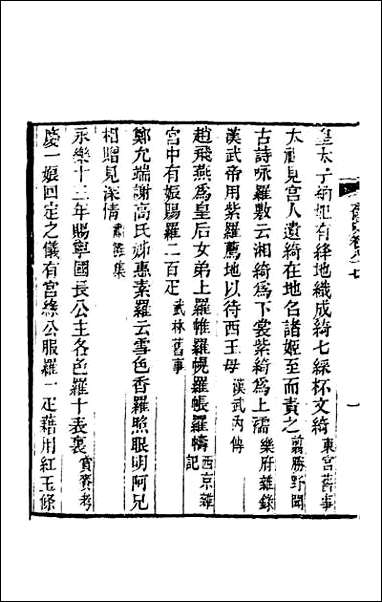 皇太子納妃有絳地織成綺七綵杯文綺 東宮舊事
太祖見宮人遺綺在地召諸姬至而責之 翦勝野聞
古詩咏羅敷云湘綺爲下裳紫綺爲上襦 樂府雜錄
漢武帝用紫羅薦地以待西王母 漢武內傳
趙飛燕爲皇后女弟上羅帷羅幌羅帳羅幬 西京雜記
宮中有娠賜羅二百疋 武林舊事
鄭允端謝高氏姊惠素羅云雪色香羅照眼明阿兄
相贈見深情 肅雝集
永樂十三年賜寧國長公主各色羅十表裏 賞賚考
慶一娘回定之儀有宮綠公服羅一疋藉用紅玉條